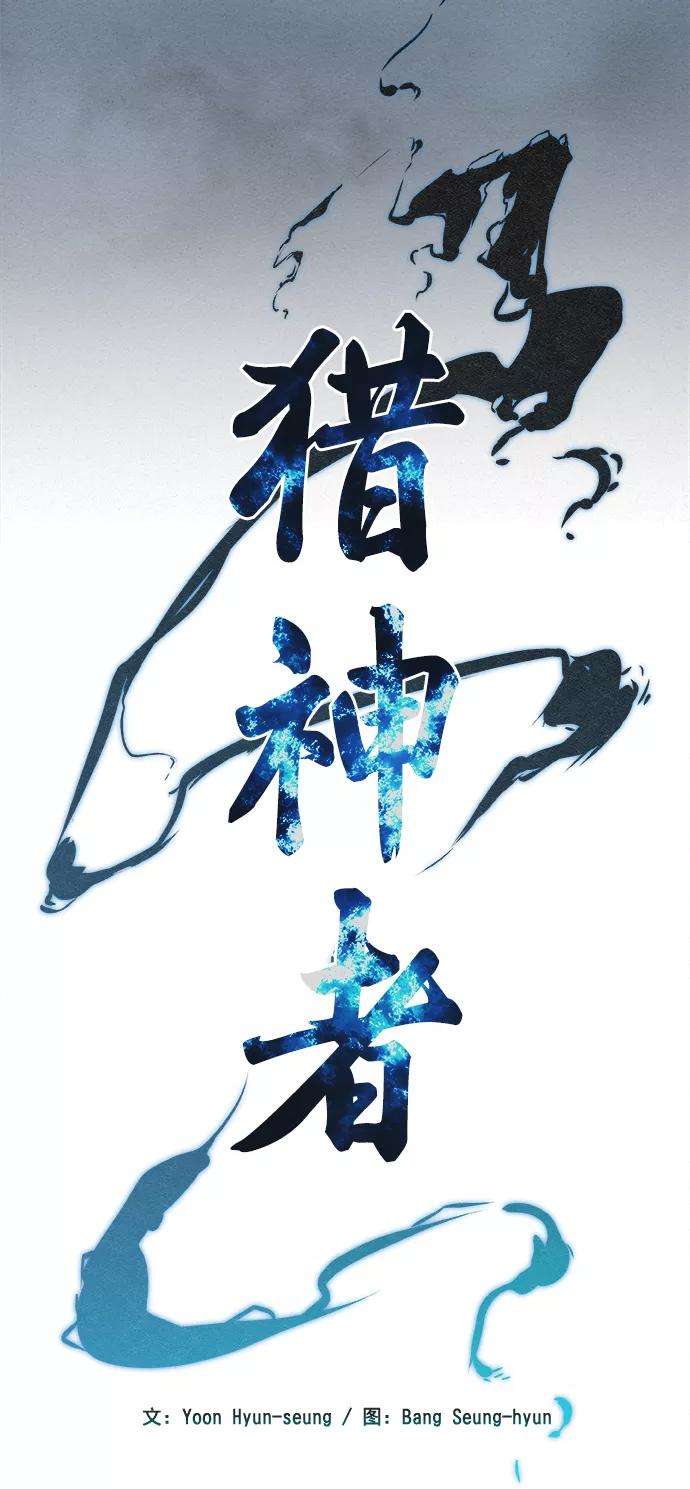 猎神者
文: Yoon Hyun-seung / 图: Bang Seung-hyun